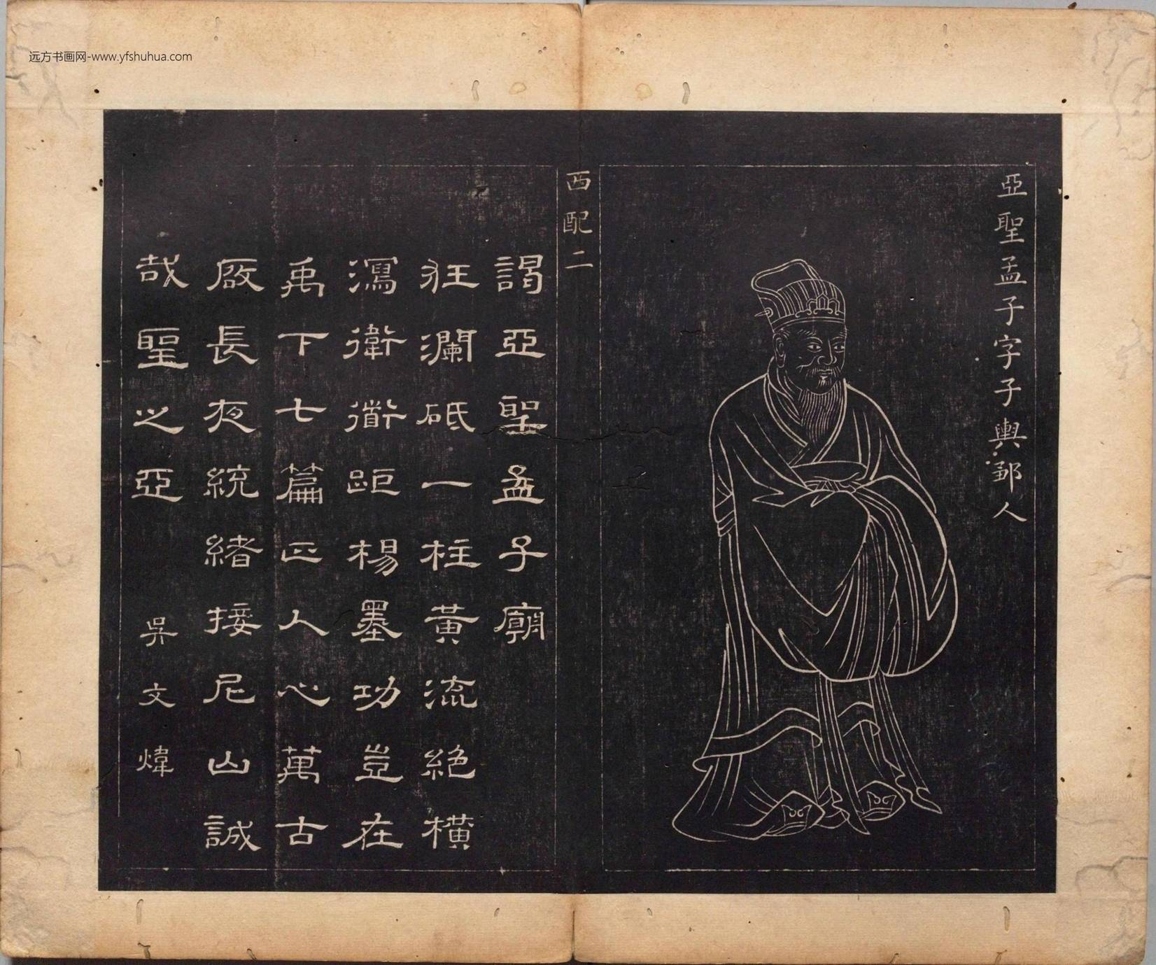 远方书画网-www.yfshuhua.com
亞聖孟子字子輿鄒人
西配二
謁亞聖孟子廟
狂瀾砥一柱黃流絕橫
瀉衛衟距楊墨功豈在
禹下七篇正人心萬古
厥長夜統緒接尼山誠
哉聖之亞
吳文煒